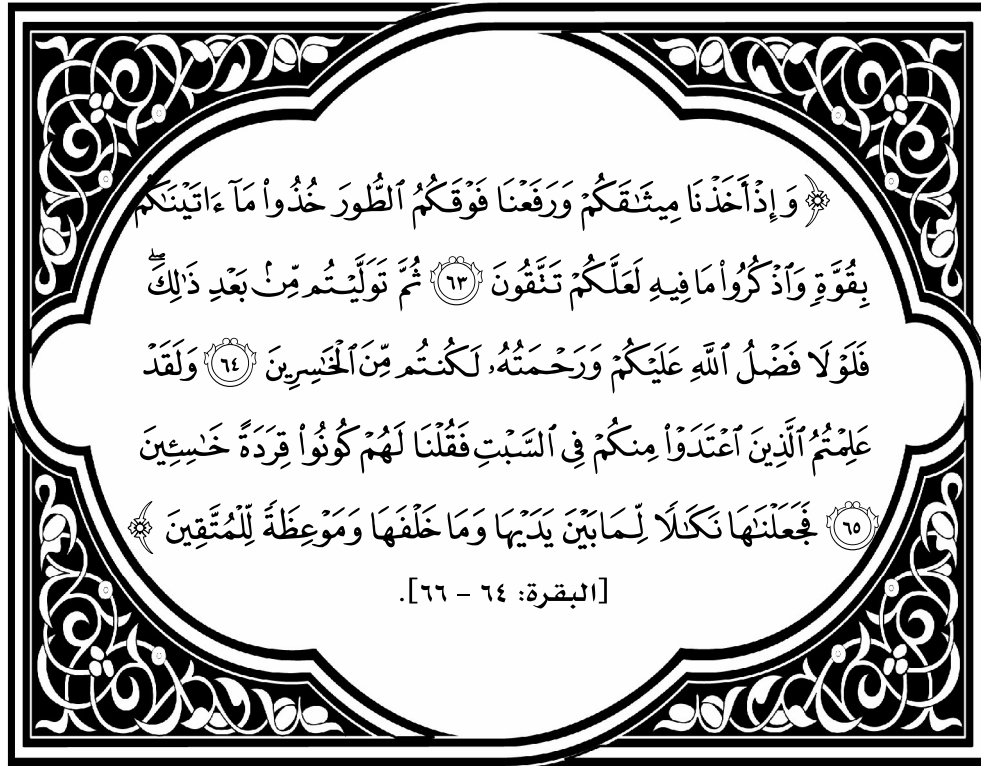 ﴿ وَإِذْ أَخَذْنَا مِيثَٰقَكُمْ وَرَفَعْنَا فَوْقَكُمُ ٱلطُّورَ خُذُوا۟ مَآ ءَاتَيْنَٰكُم
بِقُوَّةٍ وَٱذْكُرُوا۟ مَا فِيهِ لَعَلَّكُمْ تَتَّقُونَ ٦٣ ثُمَّ تَوَلَّيْتُم مِّنۢ بَعْدِ ذَٰلِكَ ۖ
فَلَوْلَا فَضْلُ ٱللَّهِ عَلَيْكُمْ وَرَحْمَتُهُۥ لَكُنتُم مِّنَ ٱلْخَٰسِرِينَ ٦٤ وَلَقَدْ
عَلِمْتُمُ ٱلَّذِينَ ٱعْتَدَوْا۟ مِنكُمْ فِى ٱلسَّبْتِ فَقُلْنَا لَهُمْ كُونُوا۟ قِرَدَةً خَٰسِـِٔينَ
٦٥ فَجَعَلْنَٰهَا نَكَٰلًا لِّمَا بَيْنَ يَدَيْهَا وَمَا خَلْفَهَا وَمَوْعِظَةً لِّلْمُتَّقِينَ ﴾
[البقرة: ٦٤ – ٦٦].